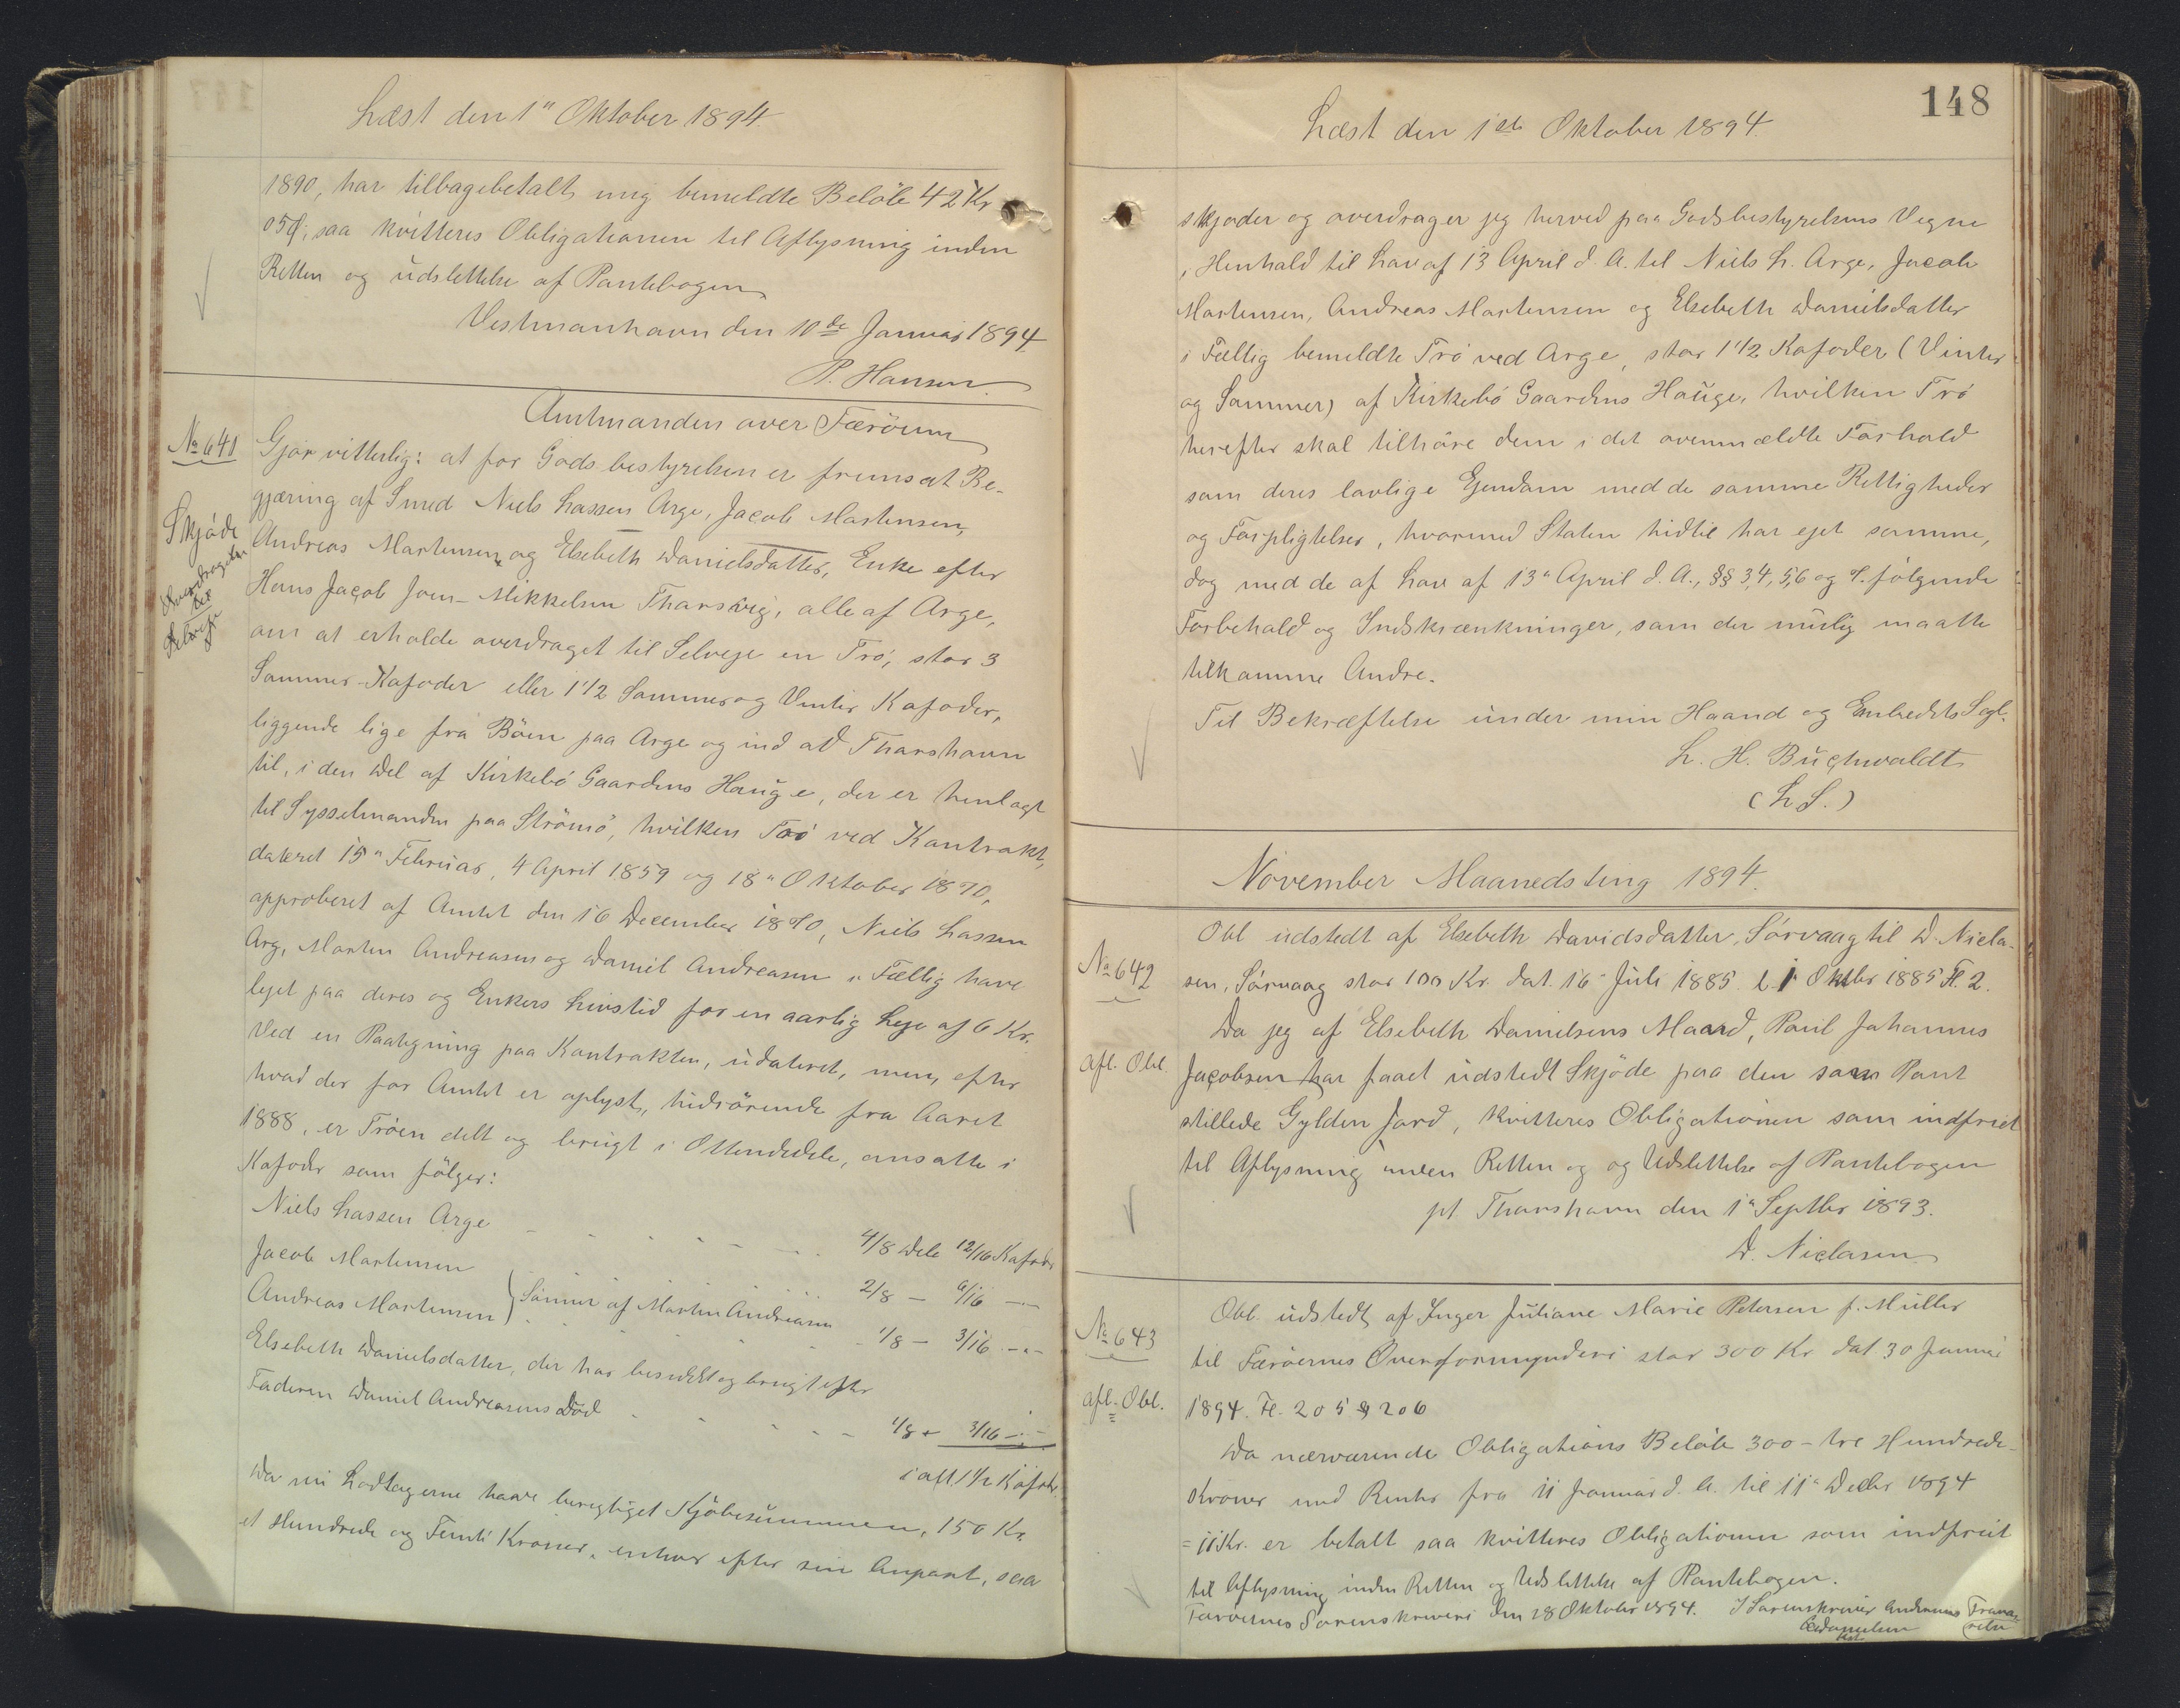 Læst den 1" Oktober 1894.
1890, har tilbagebetalt mig bemeldte Beløb 42 Kr
05 Ø, saa kvitteres Obligationen til Aflysning inden
Retten og Udslettelse af Pantebogen
Vestmanhavn den 10de Januar 1894
P. Hansen
Amtmanden over Færöerne
No 641
Gjør vitterlig: at for Godsbestyrelsen er fremsat Be-
gjæring af Smed Niels Lassen Arge, Jacob Martensen,
Skjöde
Andreas Martensen og Elsebeth Danielsdatter, Enke efter
Overdragelse
til
Selveje
Hans Jacob Joen-Mikkelsen Thorsvig, alle af Arge,
om at erholde overdraget til Selveje en Trö, stor 3
Sommer-Kofoder eller 1 1/2 Sommer og Vinter Kofoder,
liggende lige fra Böen paa Arge og ind ad Thorshavn
til, i den Del af Kirkebö Gaardens Hauge, der er henlagt
til Sysselmanden paa Strömö, hvilken Trö ved Kontrakt,
dateret 15" Februar, 4 April 1859 og 18" Oktober 1870,
approberet af Amtet den 16 December 1870, Niels Lassen
Arg, Morten Andreasen og Daniel Andreasen i Fællig have
lejet paa deres og Enkers Livstid for en aarlig Leje af 6 Kr.
Ved en Paategning paa Kontrakten, udateret, men, efter
hvad der for Amtet er oplyst, hidrörende fra Aaret
1888, er Tröen delt og brugt i Ottendedele, ansatte i
Kofoder som fölger:
Niels Lassen Arge - - - - - - 4/8 Dele 12/16 Kofoder
Jacob Martensen - - - - 2/8 — 6/16 —
Andreas Martensen } Sönner af Morten Andreasen - 1/8 — 3/16 —
Elsebeth Danielsdatter, der har besiddet og brugt efter
Faderen Daniel Andreasens Död - - - - 1/8 - 3/16 —
i alt 1 1/2 Kofoder
Da nu Lodtagerne have berigtiget Kjöbesummen, 150 Kr.
et Hundrede og Femti Kroner, enhver efter sin Anpart, saa
148
Læst den 1ste Oktober 1894.
skjöder og overdrager jeg herved paa Godsbestyrelsens Vegne
i Henhold til Lov af 13 April d. A. til Niels L. Arge, Jacob
Martensen, Andreas Martensen og Elsebeth Danielsdatter
i Fællig bemeldte Trö ved Arge, stor 1 1/2 Kofoder (Vinter
og Sommer) af Kirkebö Gaardens Hauge, hvilken Trö
herefter skal tilhöre dem i det ovenmældte Forhold
som deres lovlige Ejendom med de samme Rettigheder
og Forpligtelser, hvormed Staten hidtil har ejet samme,
dog med de af Lov af 13" April d. A., §§ 3, 4, 5, 6 og 7. fölgende
Forbehold og Indskrænkninger, som der mulig maatte
tilkomme Andre.
Til Bekræftelse under min Haand og Embedets Segl.
L. H. Buchwaldt
(L. S.)
November Maanedsting 1894.
Obl udstedt af Elsebeth Davidsdatter, Sörvaag til D. Niela-
No 642
sen, Sörvaag stor 100 Kr. dat. 16 Juli 1885. l. 1 Oktbr 1885 Fl. 2.
Da jeg af Elsebeth Danielsens Mand, Poul Johannes
afl. Obl.
Jacobsen har faaet udstedt Skjöde paa den som Pant
stillede Gylden Jord, kvitteres Obligationen som indfriet
til Aflysning inden Retten og og Udslettelse af Pantebogen
pt. Thorshavn den 1" Septbr 1893.
D. Nielasen
Obl. udstedt af Inger Juliane Marie Petersen f. Müller
No 643
til Færöernes Overformynderi stor 300 Kr dat. 30 Januar
afl. Obl.
1894. Fl. 205 & 206
Da nærværende Obligations Belöb 300 - tre Hundrede
Kroner med Renter fra 11 Januar d. A. til 11" Decbr 1894
= 11 Kr. er betalt saa kvitteres Obligationen som indfriet
til Aflysning inden Retten og Udslettelse af Pantebogen.
Færöernes Sorenskriveri den 28 Oktober 1894. I Sorenskriver Andersens Fravæ-
relse
Danielsen